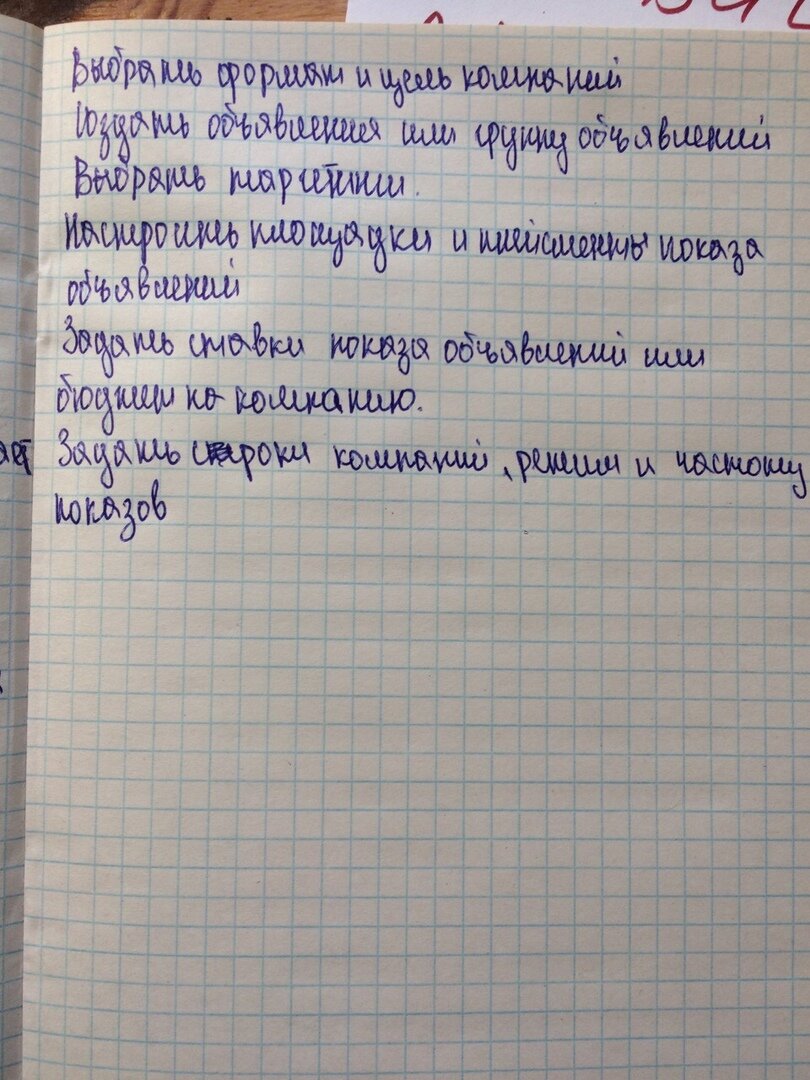 Выбрать формат и цель компаний
Создать объявления или группу объявлений
Выбрать таргетинги.
Настроить площадки и плейсменты показа
объявлений
Задать ставки показа объявлений или
бюджет на компанию.
Задать сроки компаний, режим и частоту
показов